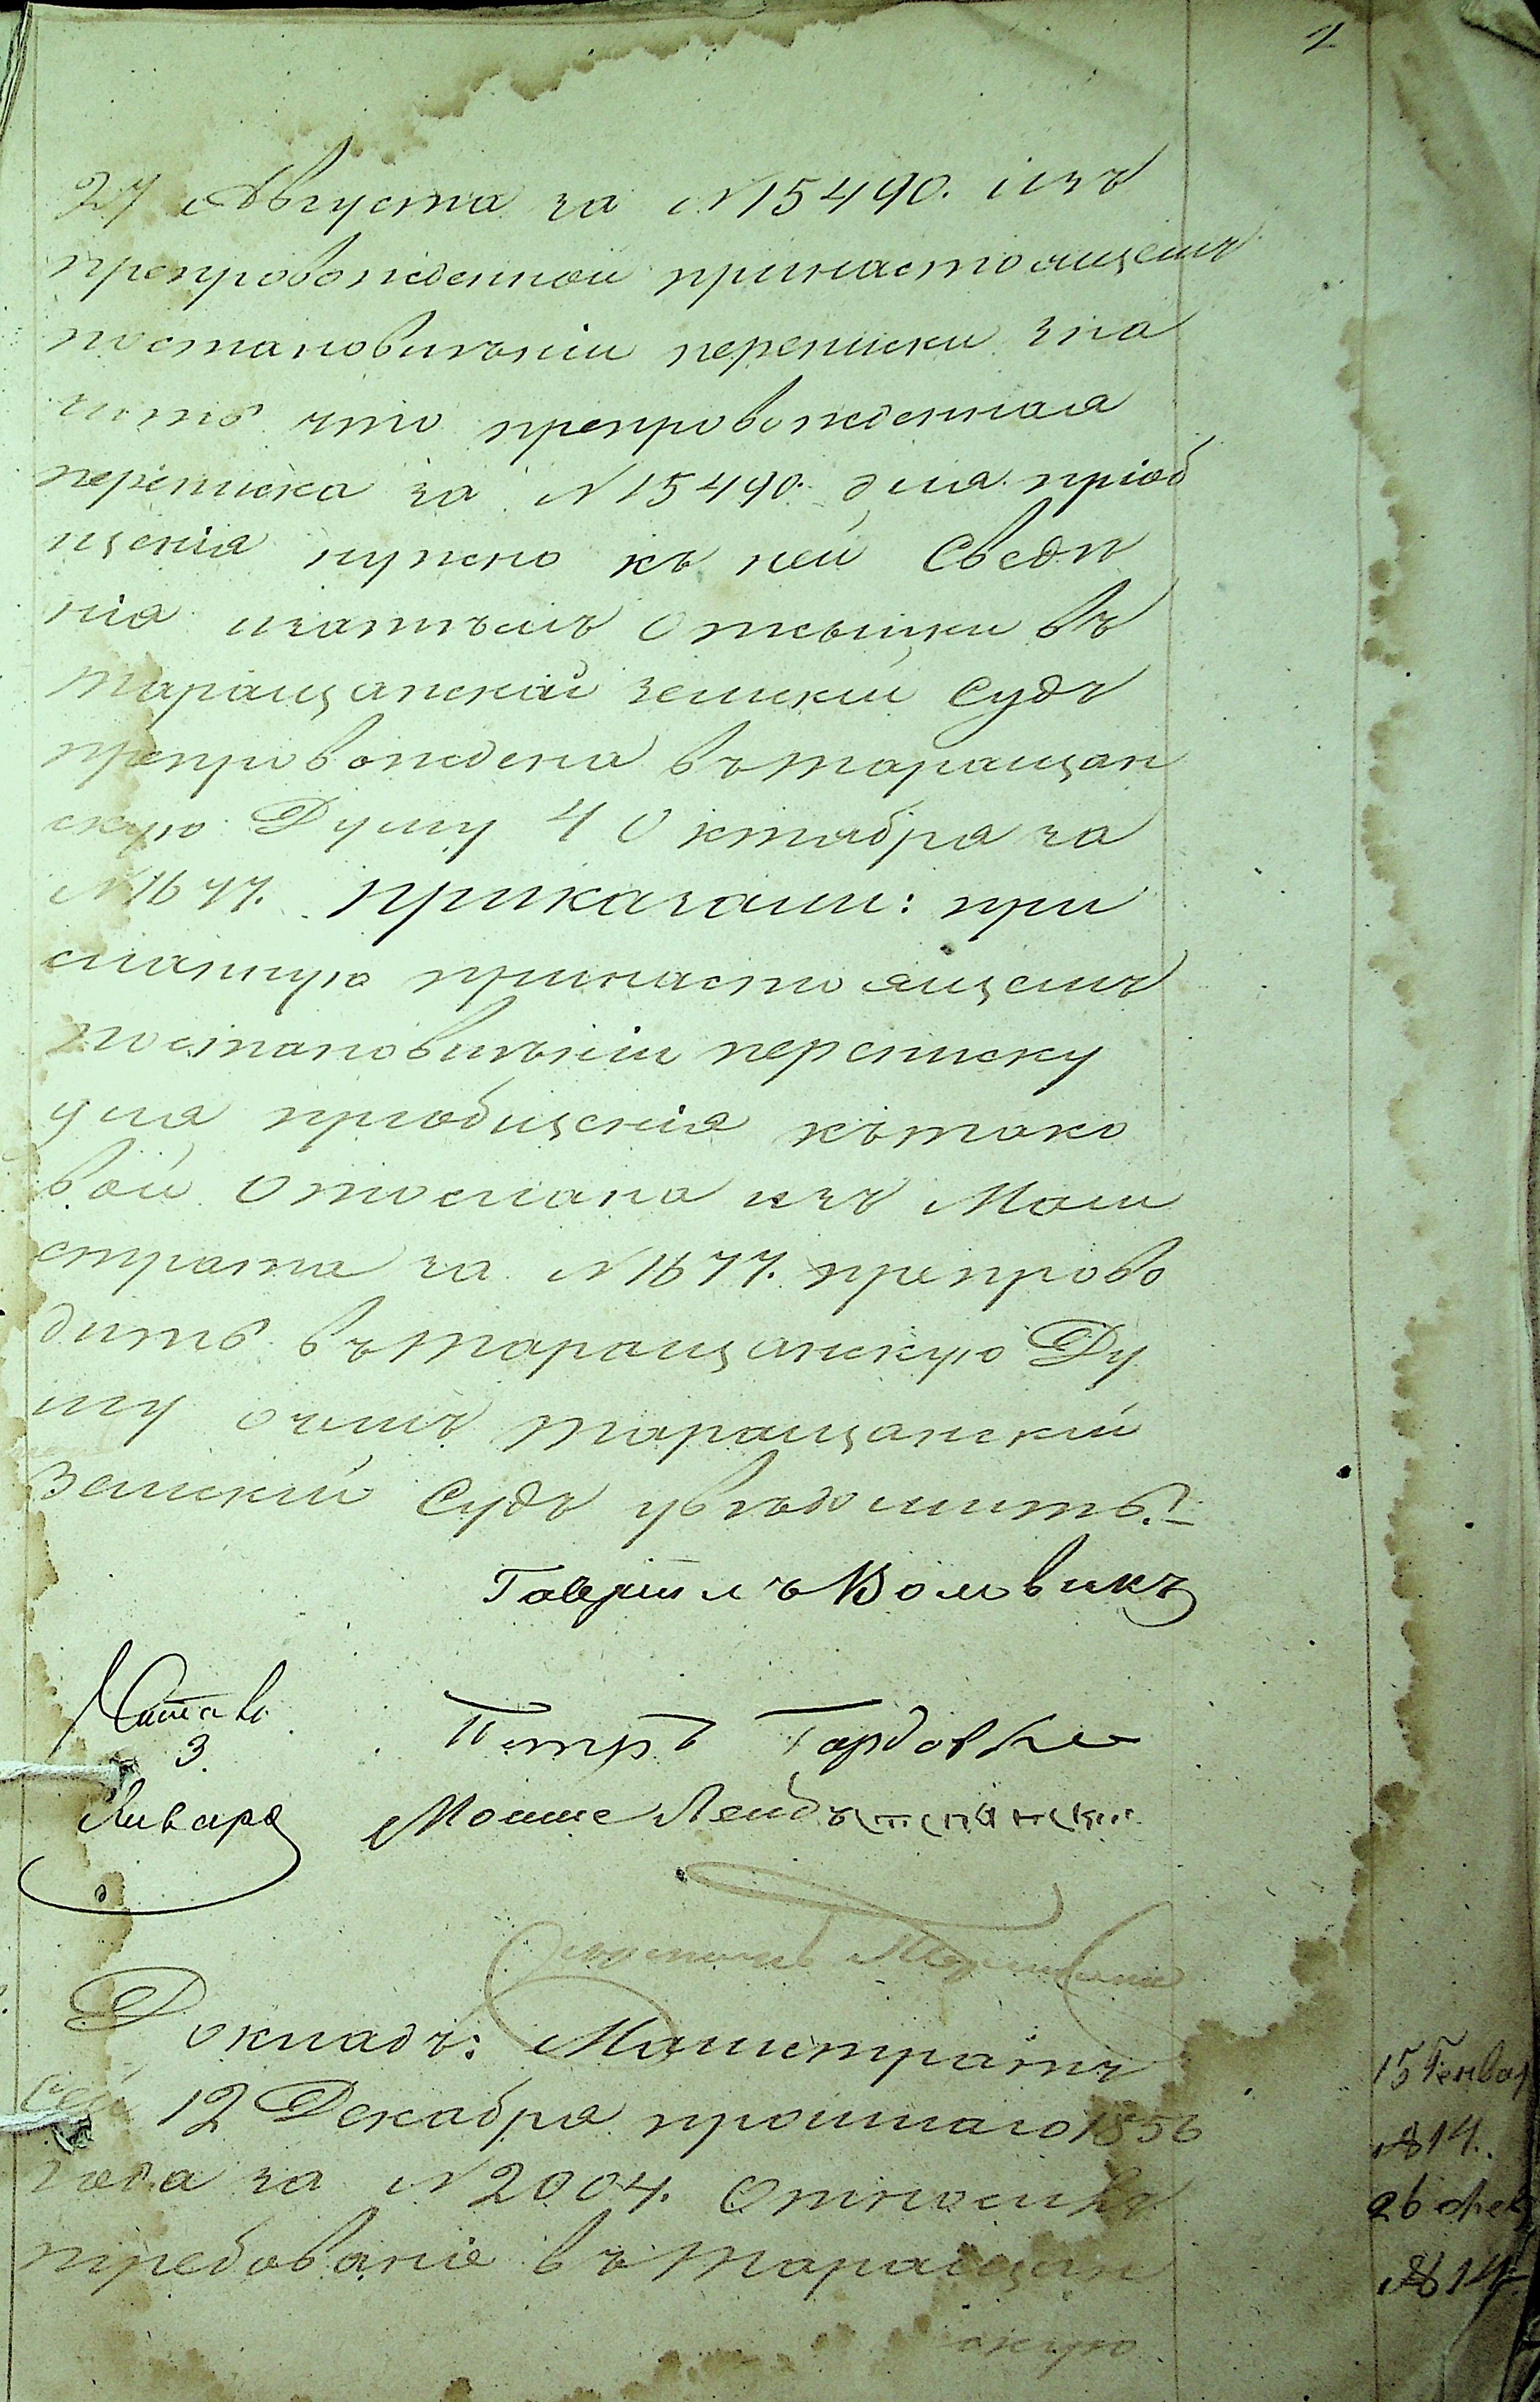 1
27 Августа за N 15490. изъ
препровожденной принастоящемъ
постановленіи переписки зна
читъ что препровожденная
переписка за N 15490. для пріоб
щенія нужно къ ней Сведѣ
нія отсылки въ
таращанскій земскій Судъ
препровождена вътаращан
скую Думу 4 Октября за
N 1677. приказали: при
сланную принастоящемъ
постановленіи переписку
для пріобщенія къ тако
вой отослана изъ Маги
страта за N 1677. препрово
дить вътаращанскую Ду
му очемъ таращанскій
Земскій Судъ увѣдомить.
Гавріилъ Вовикъ
3.
Января
Петръ
Мошке
Докладъ: Магистратъ
Сей 12 Декабря прошлаго 1856
года за N 2004. Относилъ
требованіе въ таращан
скую
15 Генвар
№ 14.
26
№ 14